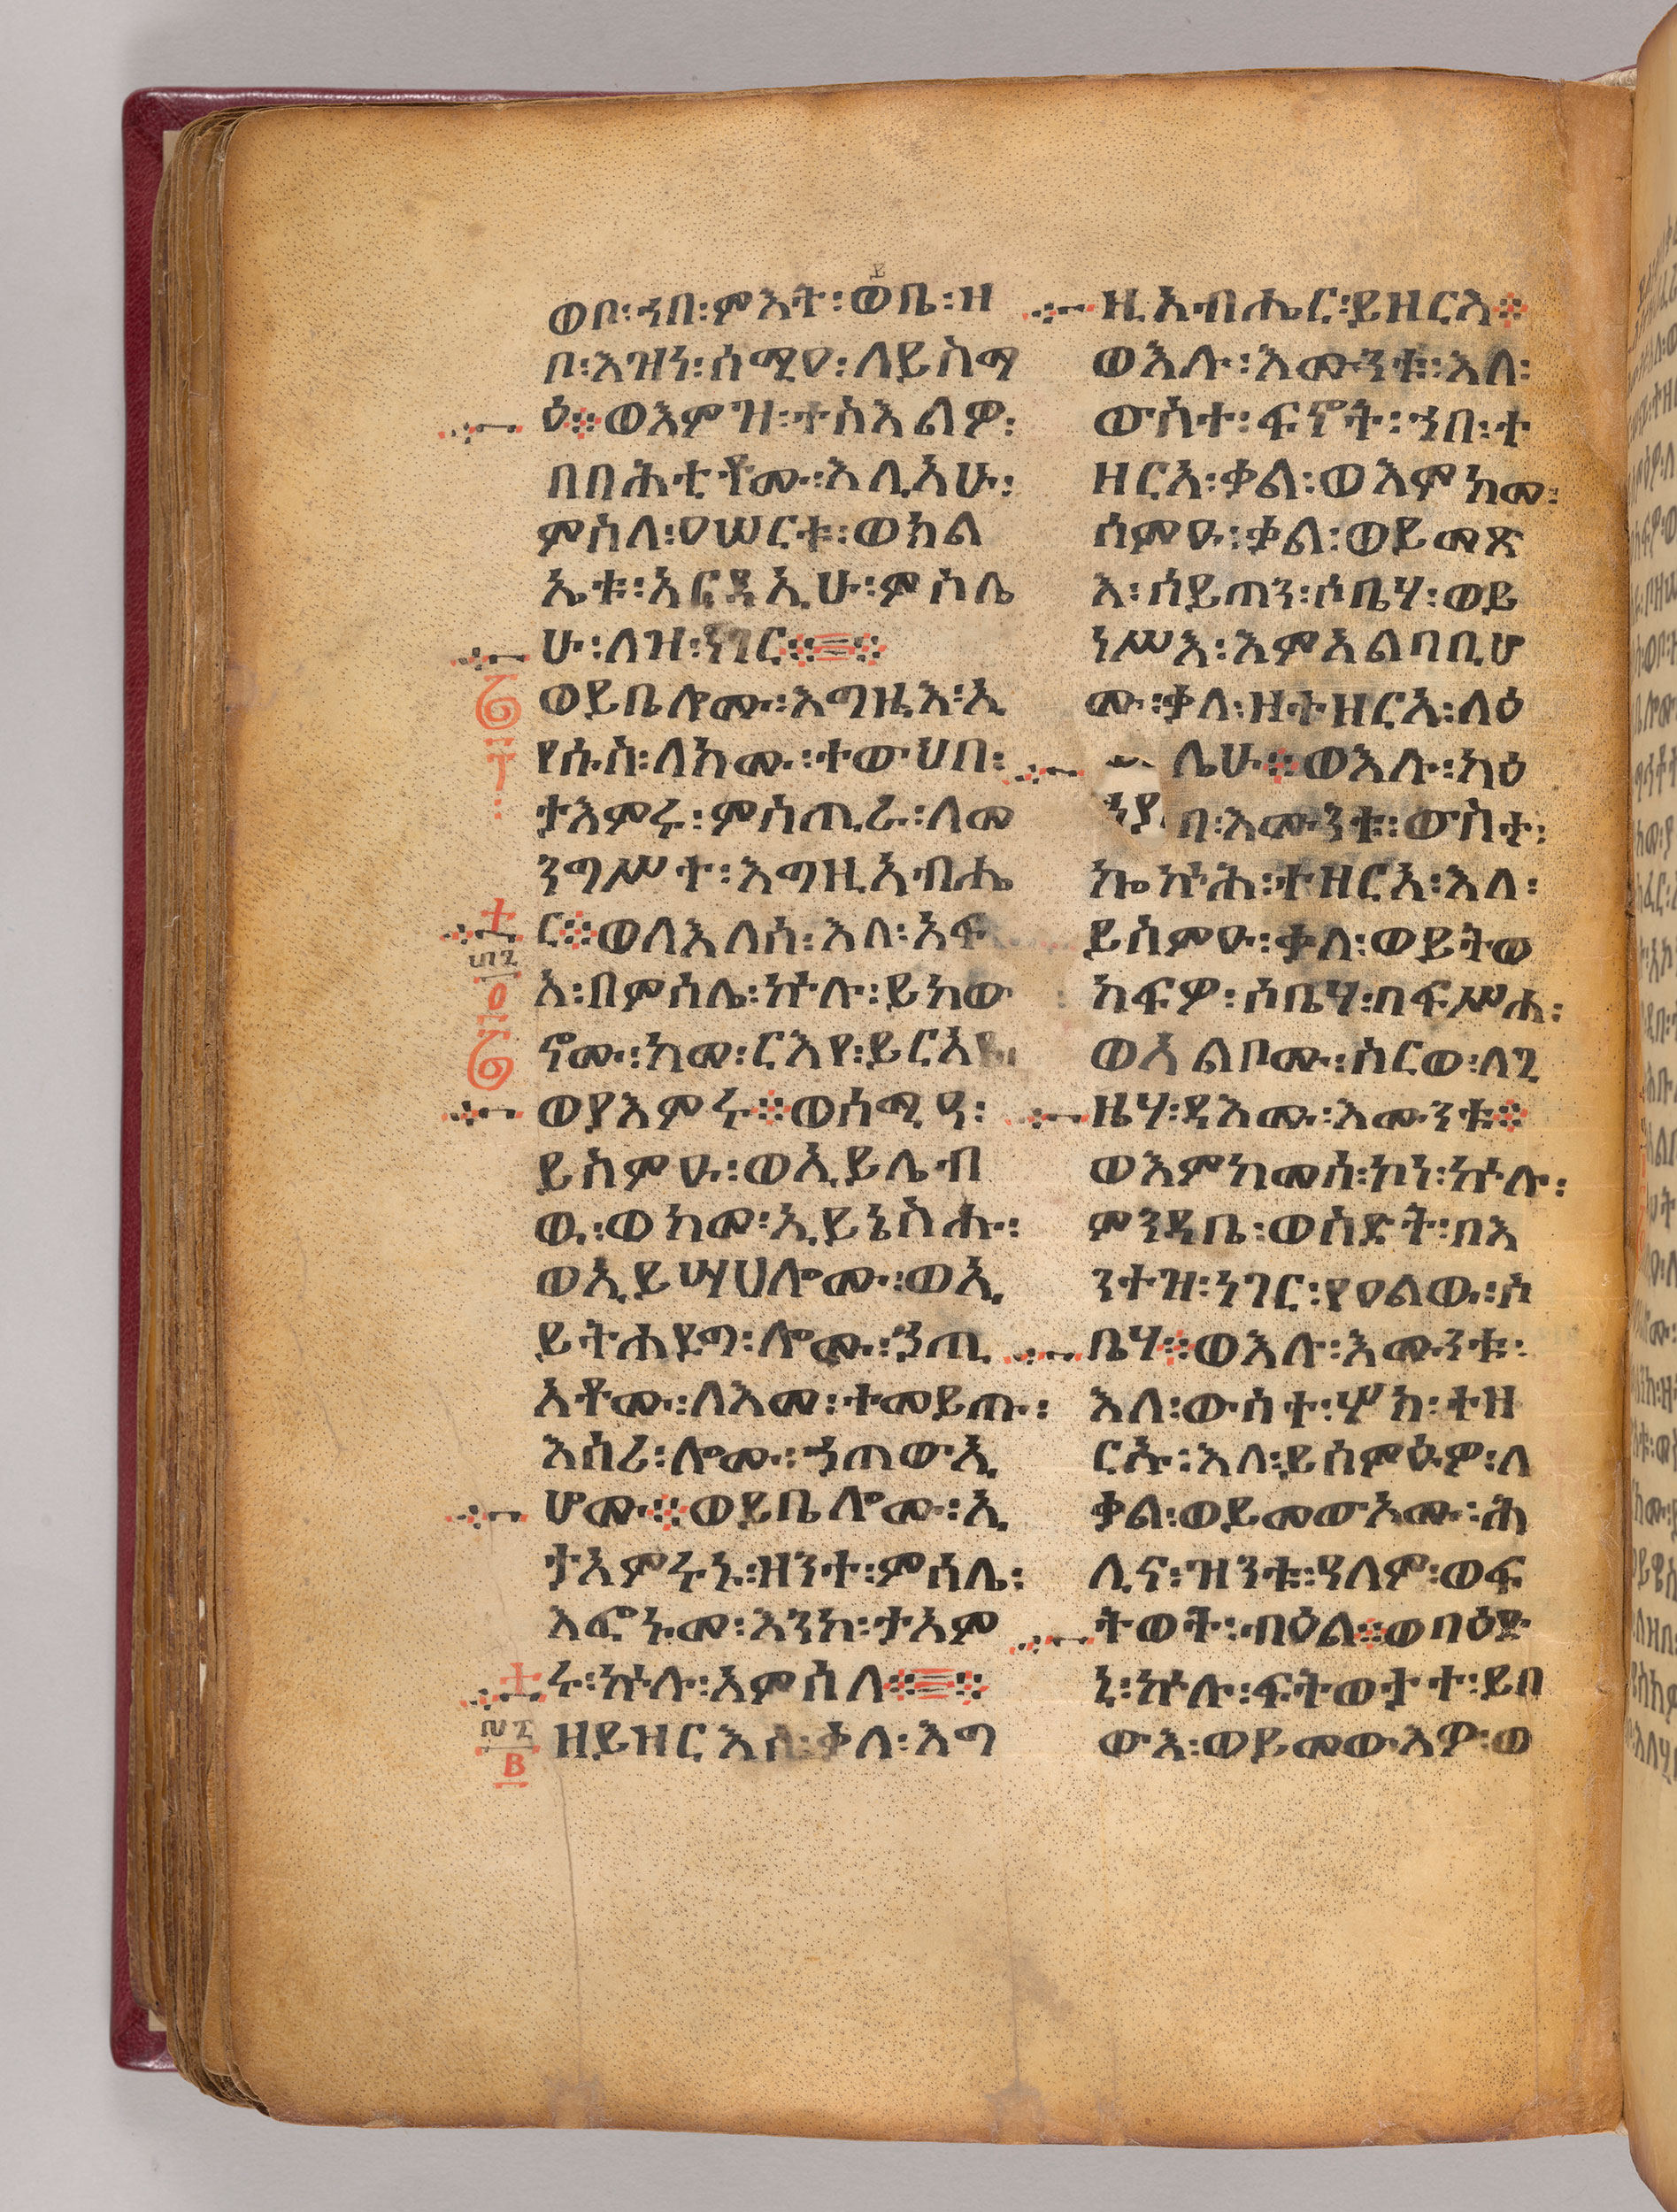 ወቦ፡ኀበ፡ምእት፡ወቤ፡ዘ
ቦ፡እዝነ፡ሰሚዐ፡ለይስማ
ዕ፨ወእምዝ፡ተስእልዎ፡
በበሕቲቶሙ፡እሊአሁ፡
ምስለ፡ዐሠርቱ፡ወክል
ኤቱ፡አርዳኢሁ፡ምስሌ
ሁ፡ለዝ፡ነገር፨
ወይቤሎሙ፡እግዚእ፡ኢ
የሱስ፡ለክሙ፡ተውህበ፡
ታእምሩ፡ምስጢራ፡ለመ
ንግሥተ፡እግዚአብሔ
ር፨ወለእለሰ፡እለ፡አፍ
አ፡በምሳሌ፡ኵሉ፡ይከው
ኖሙ፡ከመ፡ርእየ፡ይርአዩ
ወያእምሩ፨ወሰሚዓ፡
ይስምዑ፡ወኢይሌብ
ዉ፡ወከመ፡ኢይኔስሑ፡
ወኢይሣሀሎሙ፡ወኢ
ይትሐደግ፡ሎሙ፡ኀጢ
አቶሙ፡ለእመ፡ተመይጡ፡
እሰሪ፡ሎሙ፡ኀጠውኢ
ሆሙ፨ወይቤሎሙ፡ኢ
ታአምሩኑ፡ዘንተ፡ምሳሌ፡
እፎኑመ፡እንከ፡ታአም
ሩ፡ኵሎ፡አምሳለ፨
ዘይዝርእሰ፡ቃለ፡እግ
ዚአብሔር፡ይዘርእ፨
ወእሉ፡እሙንቱ፡እለ፡
ውስተ፡ፍኖት፡ኀበ፡ተ
ዘርአ፡ቃል፡ወእምከመ፡
ሰምዑ፡ቃል፡ወይመጽ
እ፡ሰይጣን፡ሶቤሃ፡ወይ
ነሥእ፡እምአልባቢሆ
ሙ፡ቃለ፡ዘተዘርአ፡ለዕ
ሌሁ፨ወእሉ፡ካዕ
በ፡እሙንቱ፡ውስተ፡
ኰኵሕ፡ተዘርአ፡እለ፡
ይሰምዑ፡ቃለ፡ወይትወ
ከፍዎ፡ሶቤሃ፡በፍሥሐ፡
ወአልቦሙ፡ስርወ፡ለጊ
ዜሃ፡ዳእሙ፡እሙንቱ፨
ወእምከመሰ፡ኮነ፡ኵሉ፡
ምንዳቤ፡ወስደት፡በእ
ንተዝ፡ነገር፡የዐልው፡ሶ
ቤሃ፨ወእሉ፡እሙንቱ፡
እለ፡ውስተ፡ሦክ፡ተዘ
ርኡ፡እለ፡ይሰምዕዎ፡ለ
ቃል፡ወይመውእሙ፡ሕ
ሊና፡ዝንቱ፡ዓለም፡ወፍ
ትወት፡ብዕል፨ወባዕድ
ኒ፡ኵሉ፡ፍትወታተ፡ይበ
ውእ፡ወይመውእዎ፡ወ